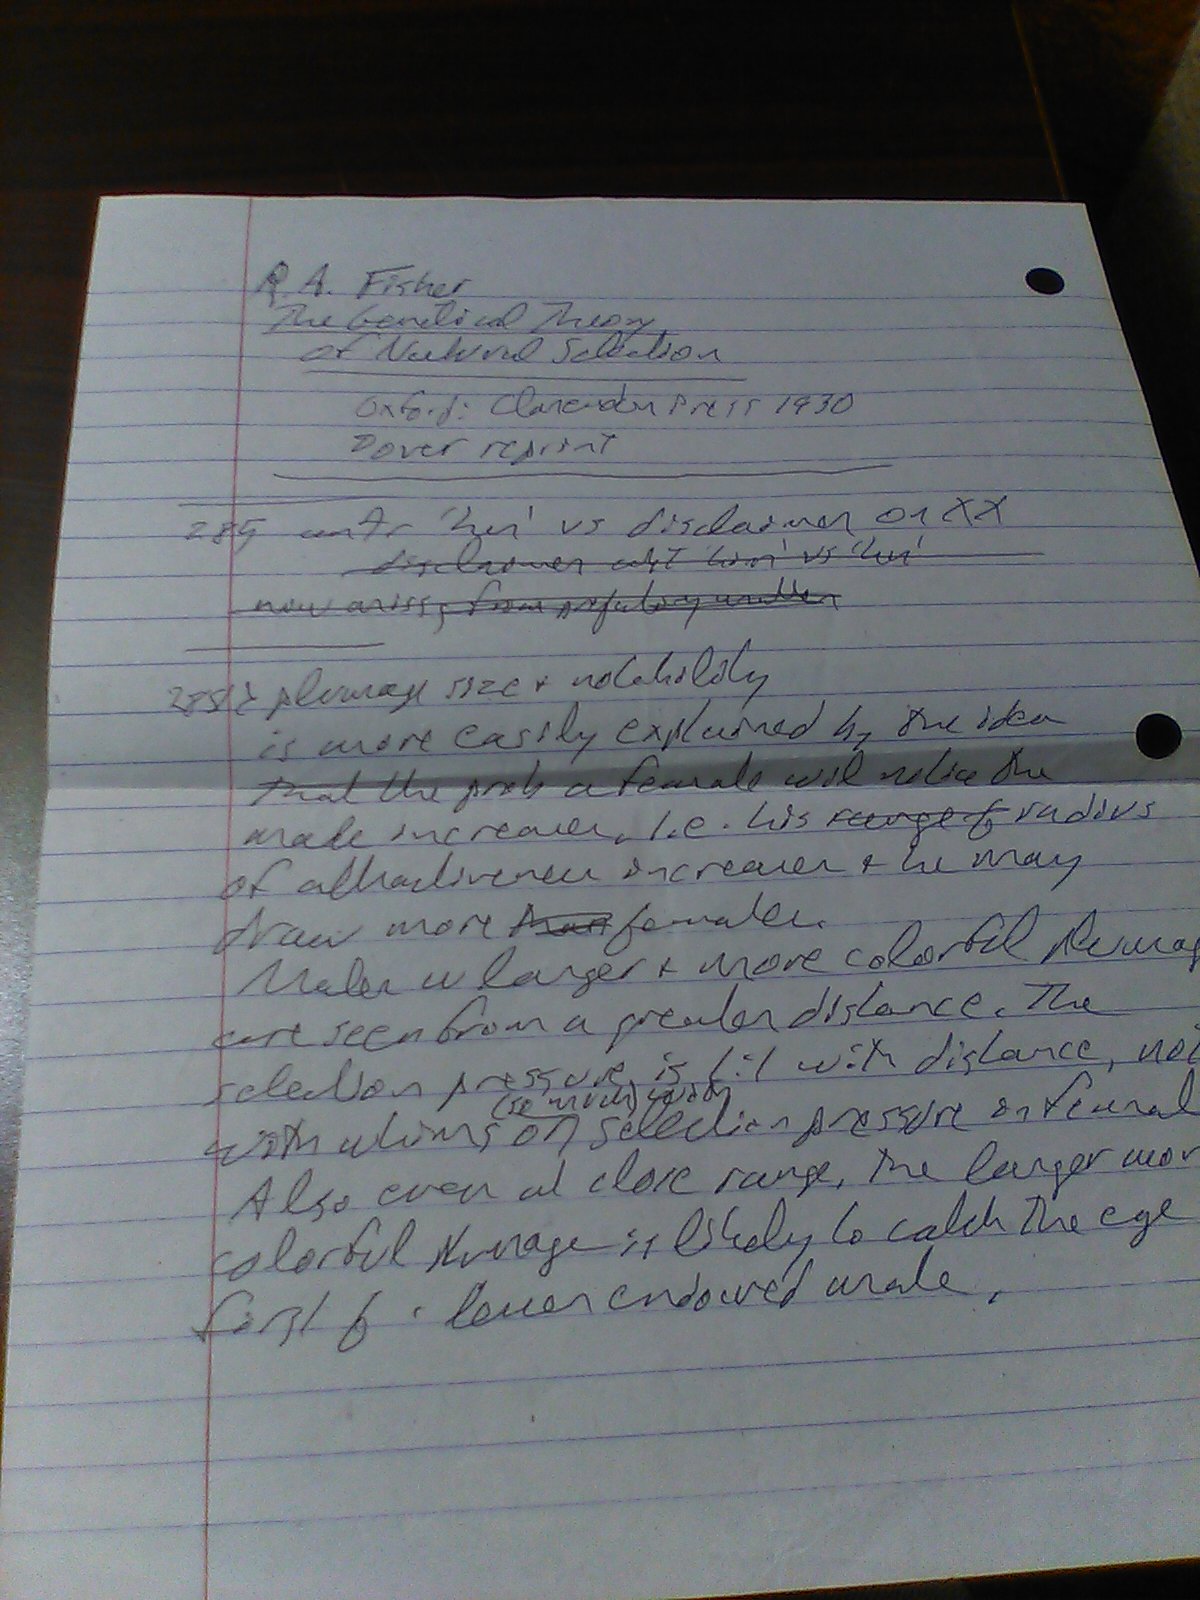 R. A. Fisher
The Genetical Theory
of Natural Selection
Oxford: Clarendon Press 1930
Dover reprint
285 vs disclaimer on XX
disclaimer vs
now from
plumage size + notability
is more easily explained by the idea
that the prob a female will notice the
male increases, i.e. his range of radius
of attractiveness increases + he may
draw more than females.
Males w larger + more colorful plumag
are seen from a greater distance. The
selection pressure is 1:1 with distance, not
(so much)
with on selection pressure in femal
Also even at close range, the larger mor
colorful plumage is likely to catch the eye
first of lesser endowed male.